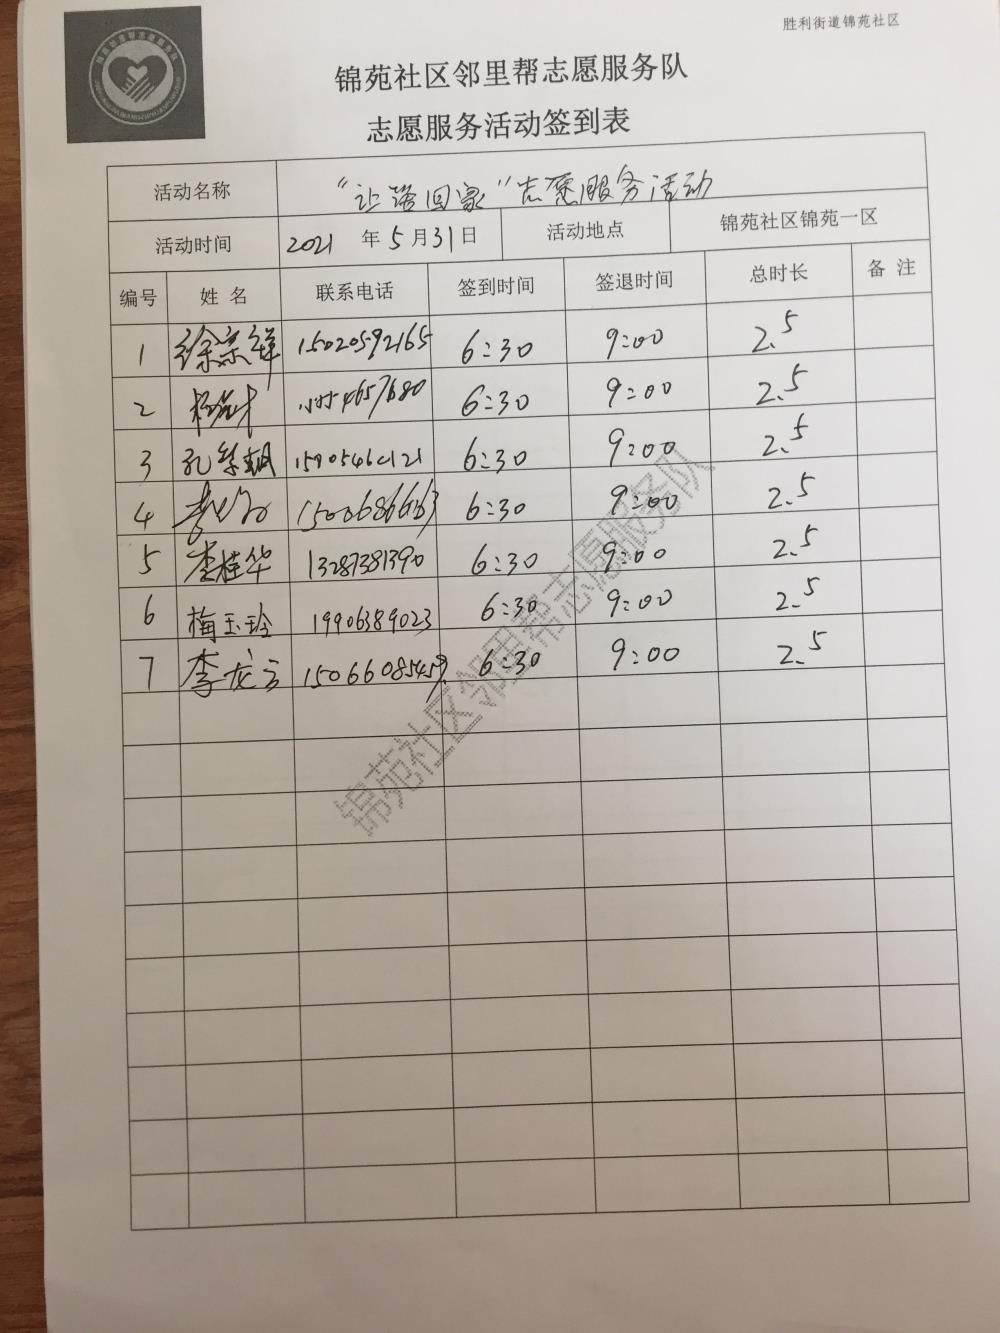 胜利街道锦苑社区
锦苑社区邻里帮志愿服务队
志愿服务活动签到表
活动名称 "让路回家"志愿服务活动
活动时间 2021 年 5 月 31 日 活动地点 锦苑社区锦苑一区
编号 姓 名 联系电话 签到时间 签退时间 总时长 备 注
1 徐宗祥 15020592165 6:30 9:00 2.5
2 6:30 9:00 2.5
3 6:30 9:00 2.5
4 6:30 9:00 2.5
5 李桂华 13287381390 6:30 9:00 2.5
6 梅玉玲 19906389023 6:30 9:00 2.5
7 李龙云 15066085459 6:30 9:00 2.5
锦苑社区邻里帮志愿服务队